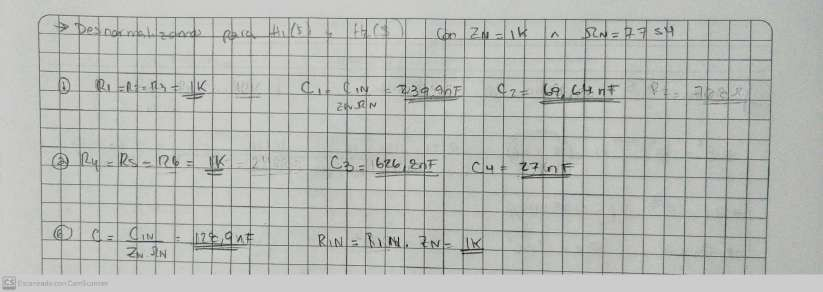 → Desnormalizando para H1(s) y H2(s) Con ZN = 1K ∧ ΩN = 7754
① R1 = R2 = R3 = 1K C1 = C1N / ZN ΩN = 239,9nF C2 = 69,64nF
② R4 = R5 = R6 = 1K C3 = 626,2nF C4 = 27nF
C = C1N / ZN ΩN = 128,9nF R1N = R1N . ZN = 1K
CS Escaneado con CamScanner